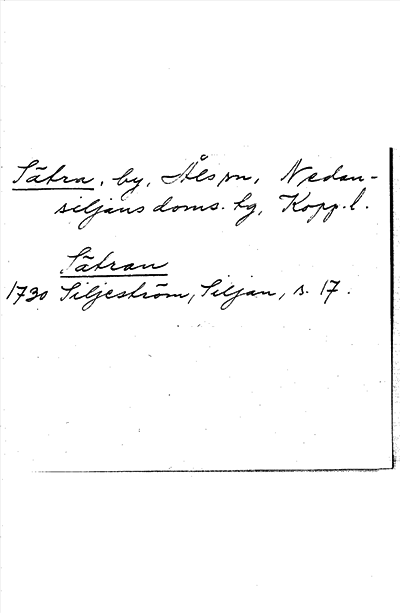 Sätra, by, Åls sn, Nedan-
siljans doms. tg, Kopp. l.
Sätran
1730 Siljeström, Siljan, s. 17.